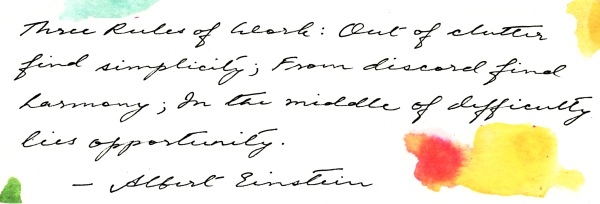 Three Rules of Work: Out of clutter
find simplicity; From discord find
harmony; In the middle of difficulty
lies opportunity.
- Albert Einstein